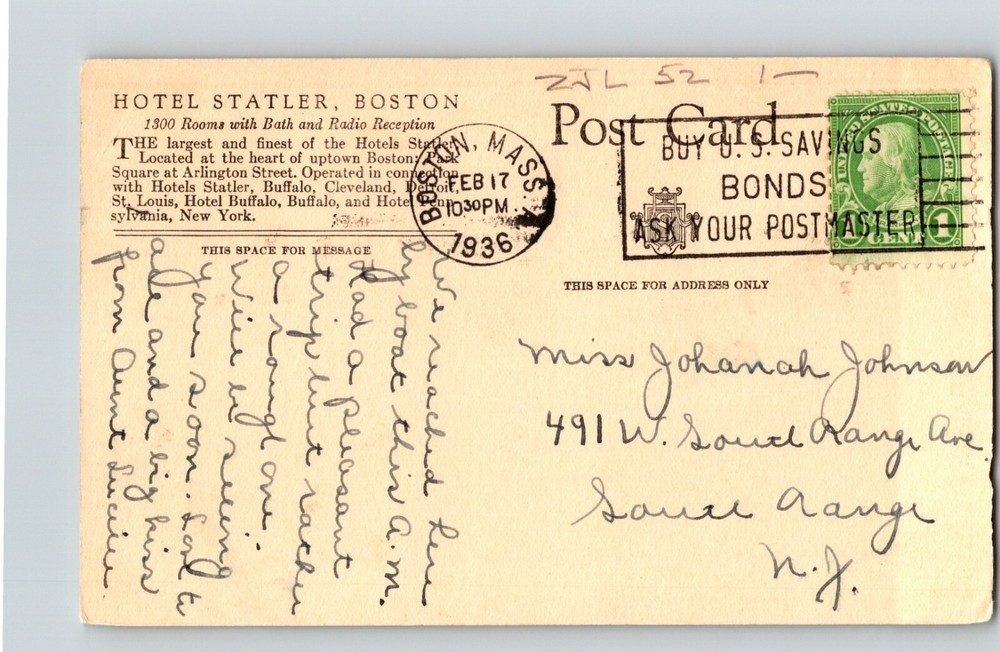 ZJL 52 1—
HOTEL STATLER, BOSTON
1300 Rooms with Bath and Radio Reception
THE largest and finest of the Hotels Statler.
Located at the heart of uptown Boston; Park
Square at Arlington Street. Operated in connection
with Hotels Statler, Buffalo, Cleveland, Detroit,
St. Louis, Hotel Buffalo, Buffalo, and Hotel Penn-
sylvania, New York.
THIS SPACE FOR MESSAGE
We reached here
by boat this A.M.
Had a pleasant
trip but rather
a rough one.
Will be seeing
you soon. Love to
all and a big kiss
from Aunt Lucille.
Post Card
BOSTON, MASS. A
FEB 17
1030 PM
1936
BUY U. S. SAVINGS
BONDS
ASK YOUR POSTMASTER
UNITED STATES POSTAGE
1 CENT 1
THIS SPACE FOR ADDRESS ONLY
Miss Johanah Johnson
491 W. South Range Ave.
South Range
N.J.